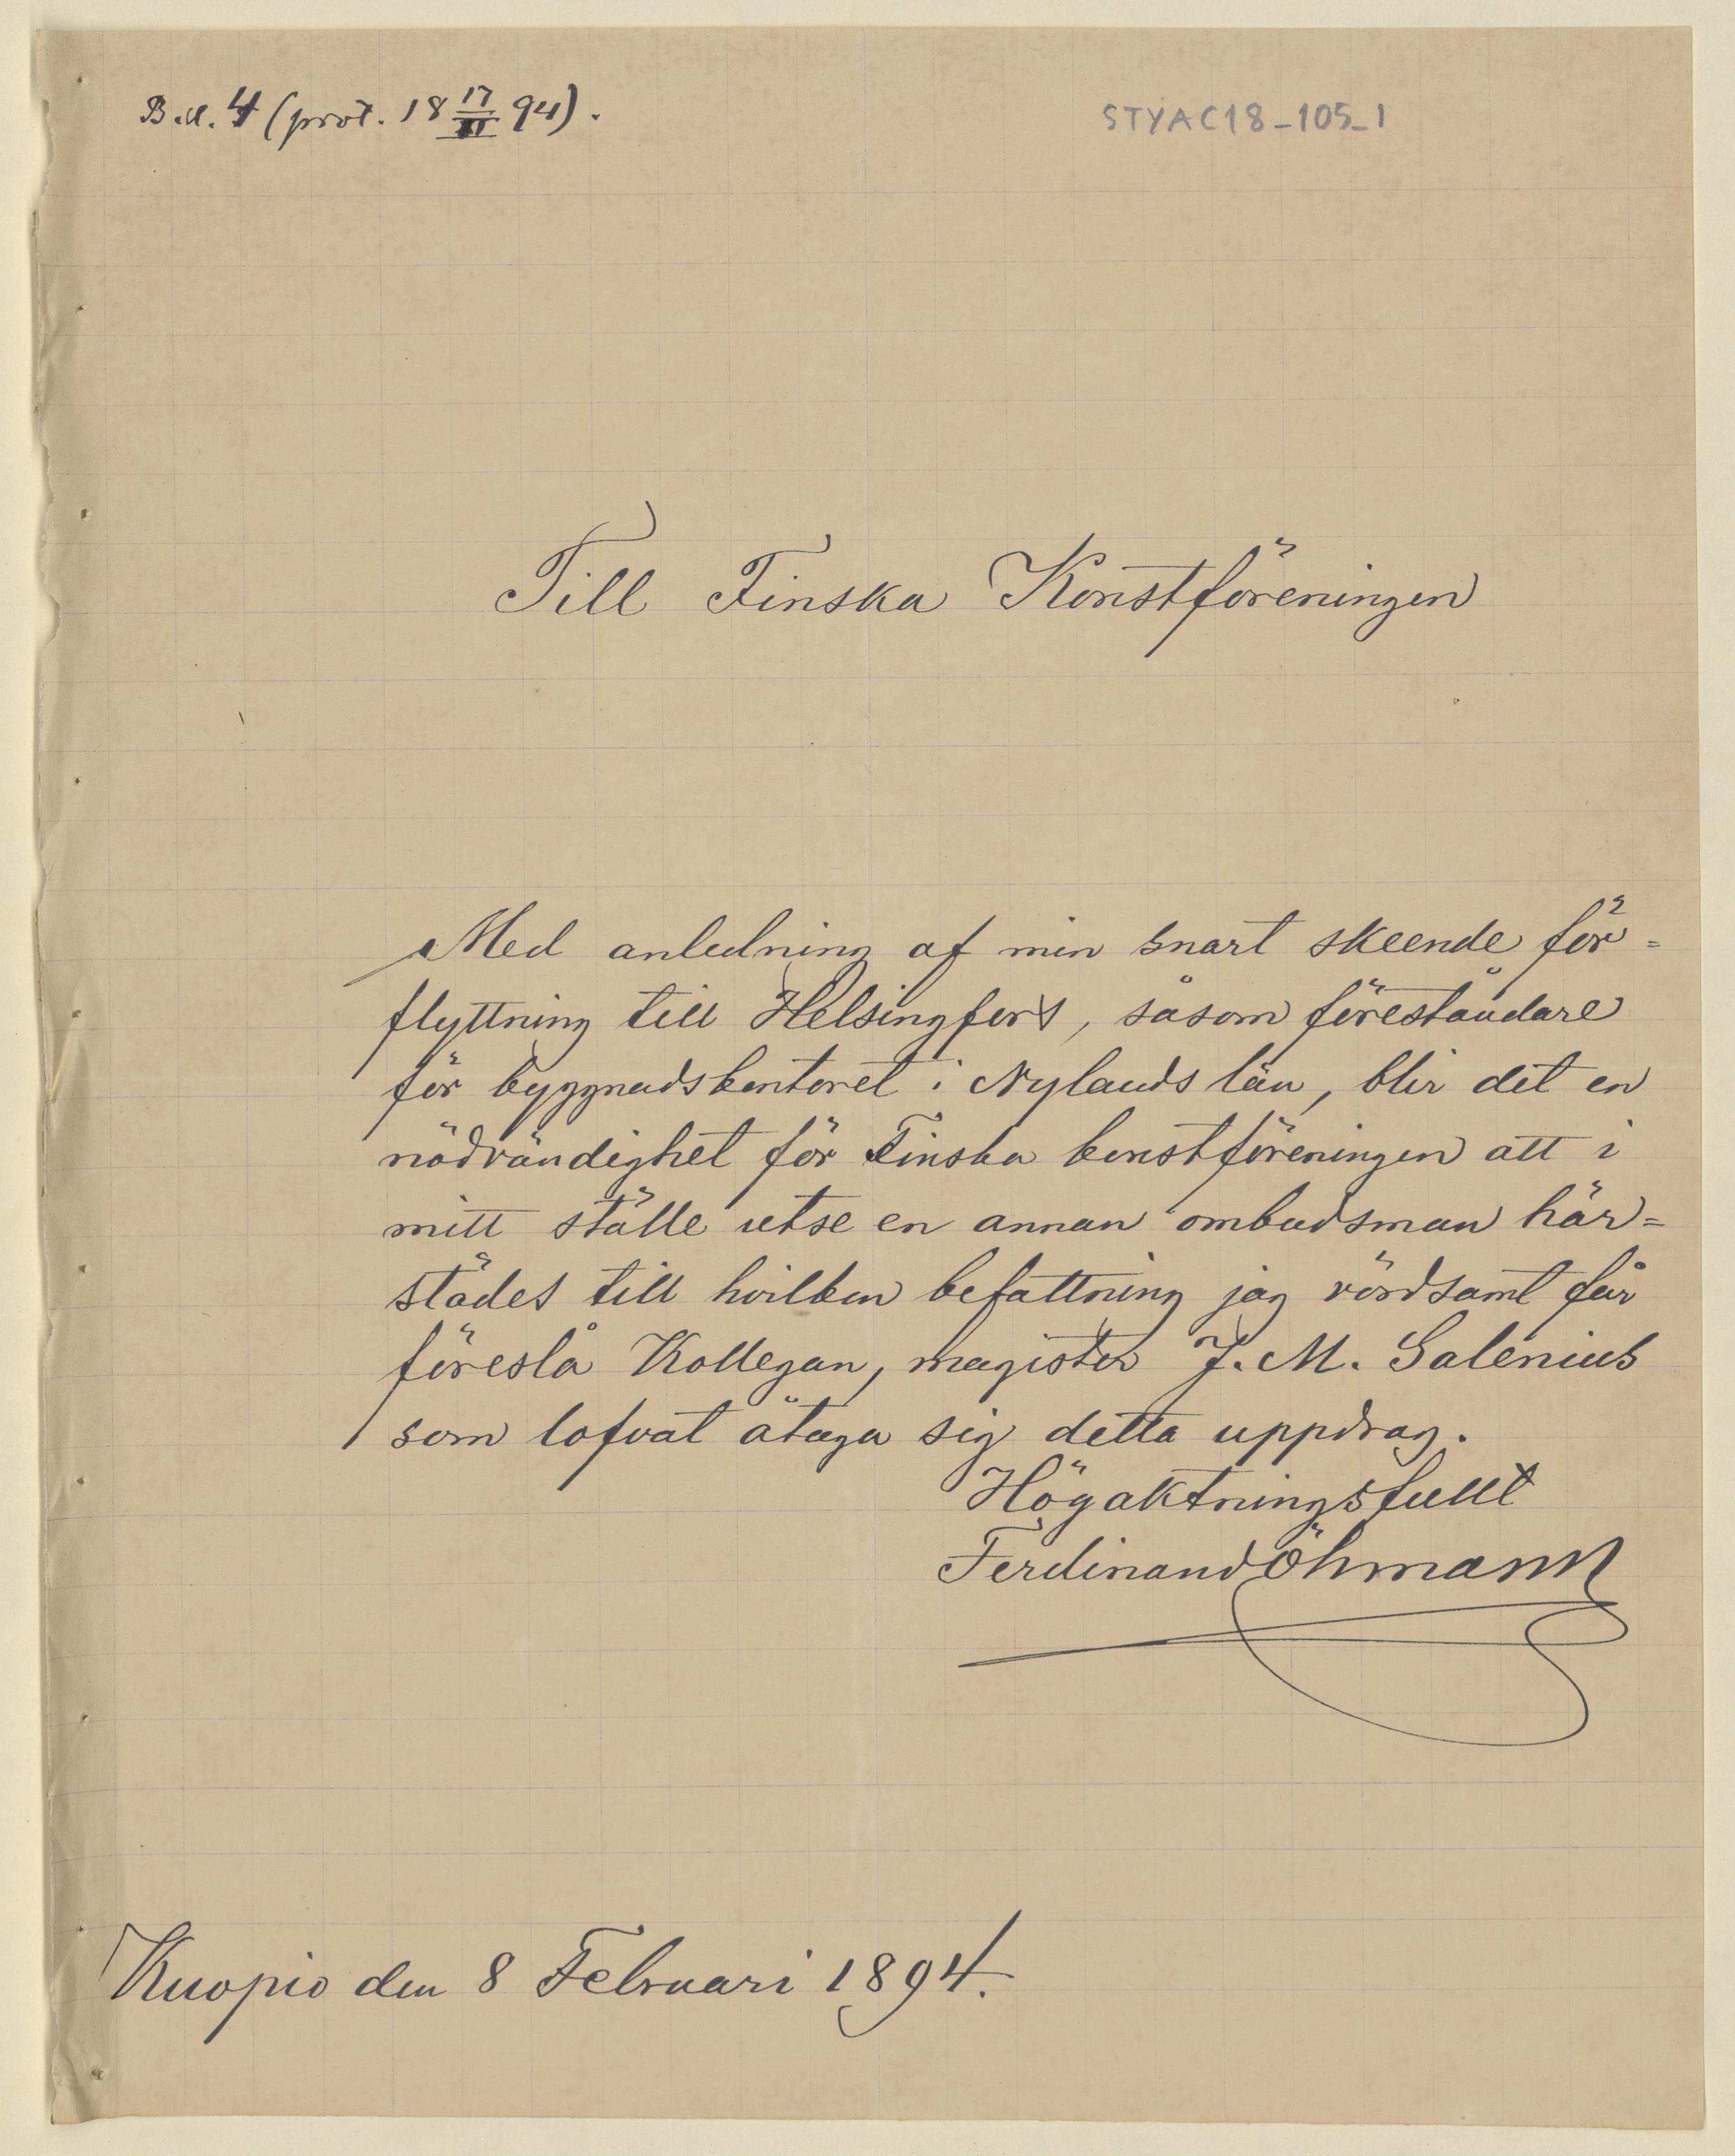 B.il. 4 (prot. 18 17/II 94).
STYAC18_105_1
Till Finska Konstföreningen
Med anledning af min snart skeende för=
flyttning till Helsingfors, såsom föreståndare
för byggnadskontoret i Nylands län, blir det en
nödvändighet för Finska konstföreningen att i
mitt ställe utse en annan ombudsman här=
städes till hvilken befattning jag vördsamt får
föreslå Kollegan, magister J. M. Salenius
som lofvat åtaga sig detta uppdrag.
Högaktningsfullt
Ferdinand Öhmann
Kuopio den 8 Februari 1894.